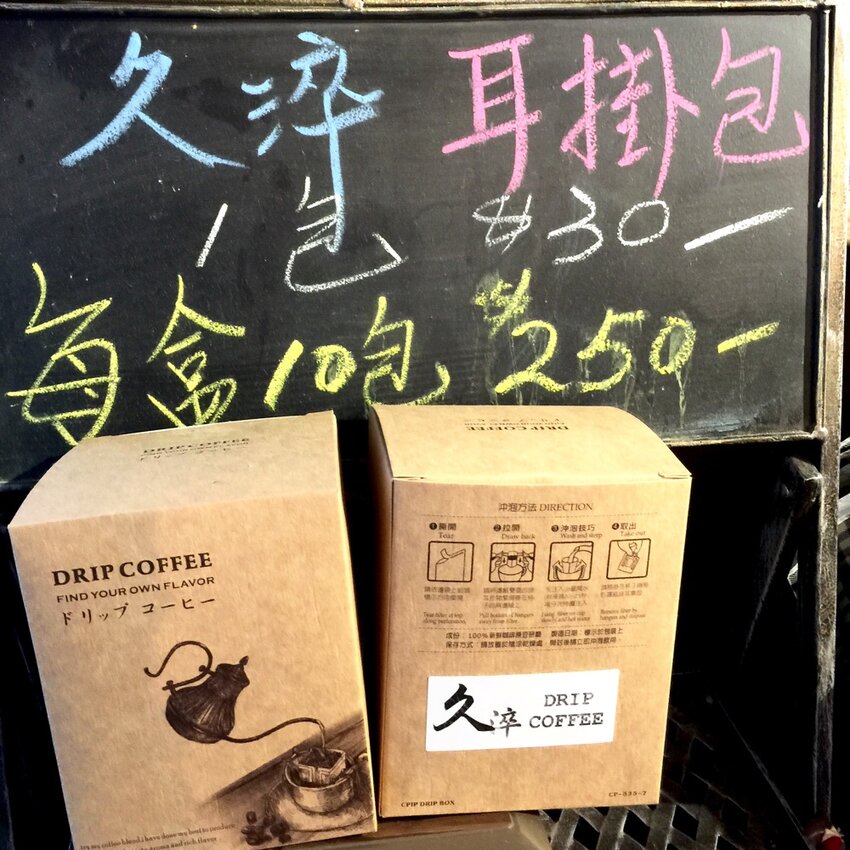 久淬 耳掛包
1包 $30—
每盒10包 $250—
DRIP COFFEE
DRIP COFFEE
FIND YOUR OWN FLAVOR
ドリップ コーヒー
DRIP COFFEE
沖泡方法 DIRECTION
❶撕開 ❷拉開 ❸沖泡技巧 ❹取出
Tear Draw back Wash and steep Take out
成份：100%新鮮咖啡原豆研磨 製造日期：標示於包裝上
保存方式：請放置於陰涼乾燥處，開封後請立即沖泡飲用。
久淬 DRIP COFFEE
CPIP DRIP BOX CP-535-7